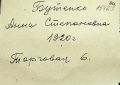 Бутенко
Анна Степановна
1920г.
Торговая 6.